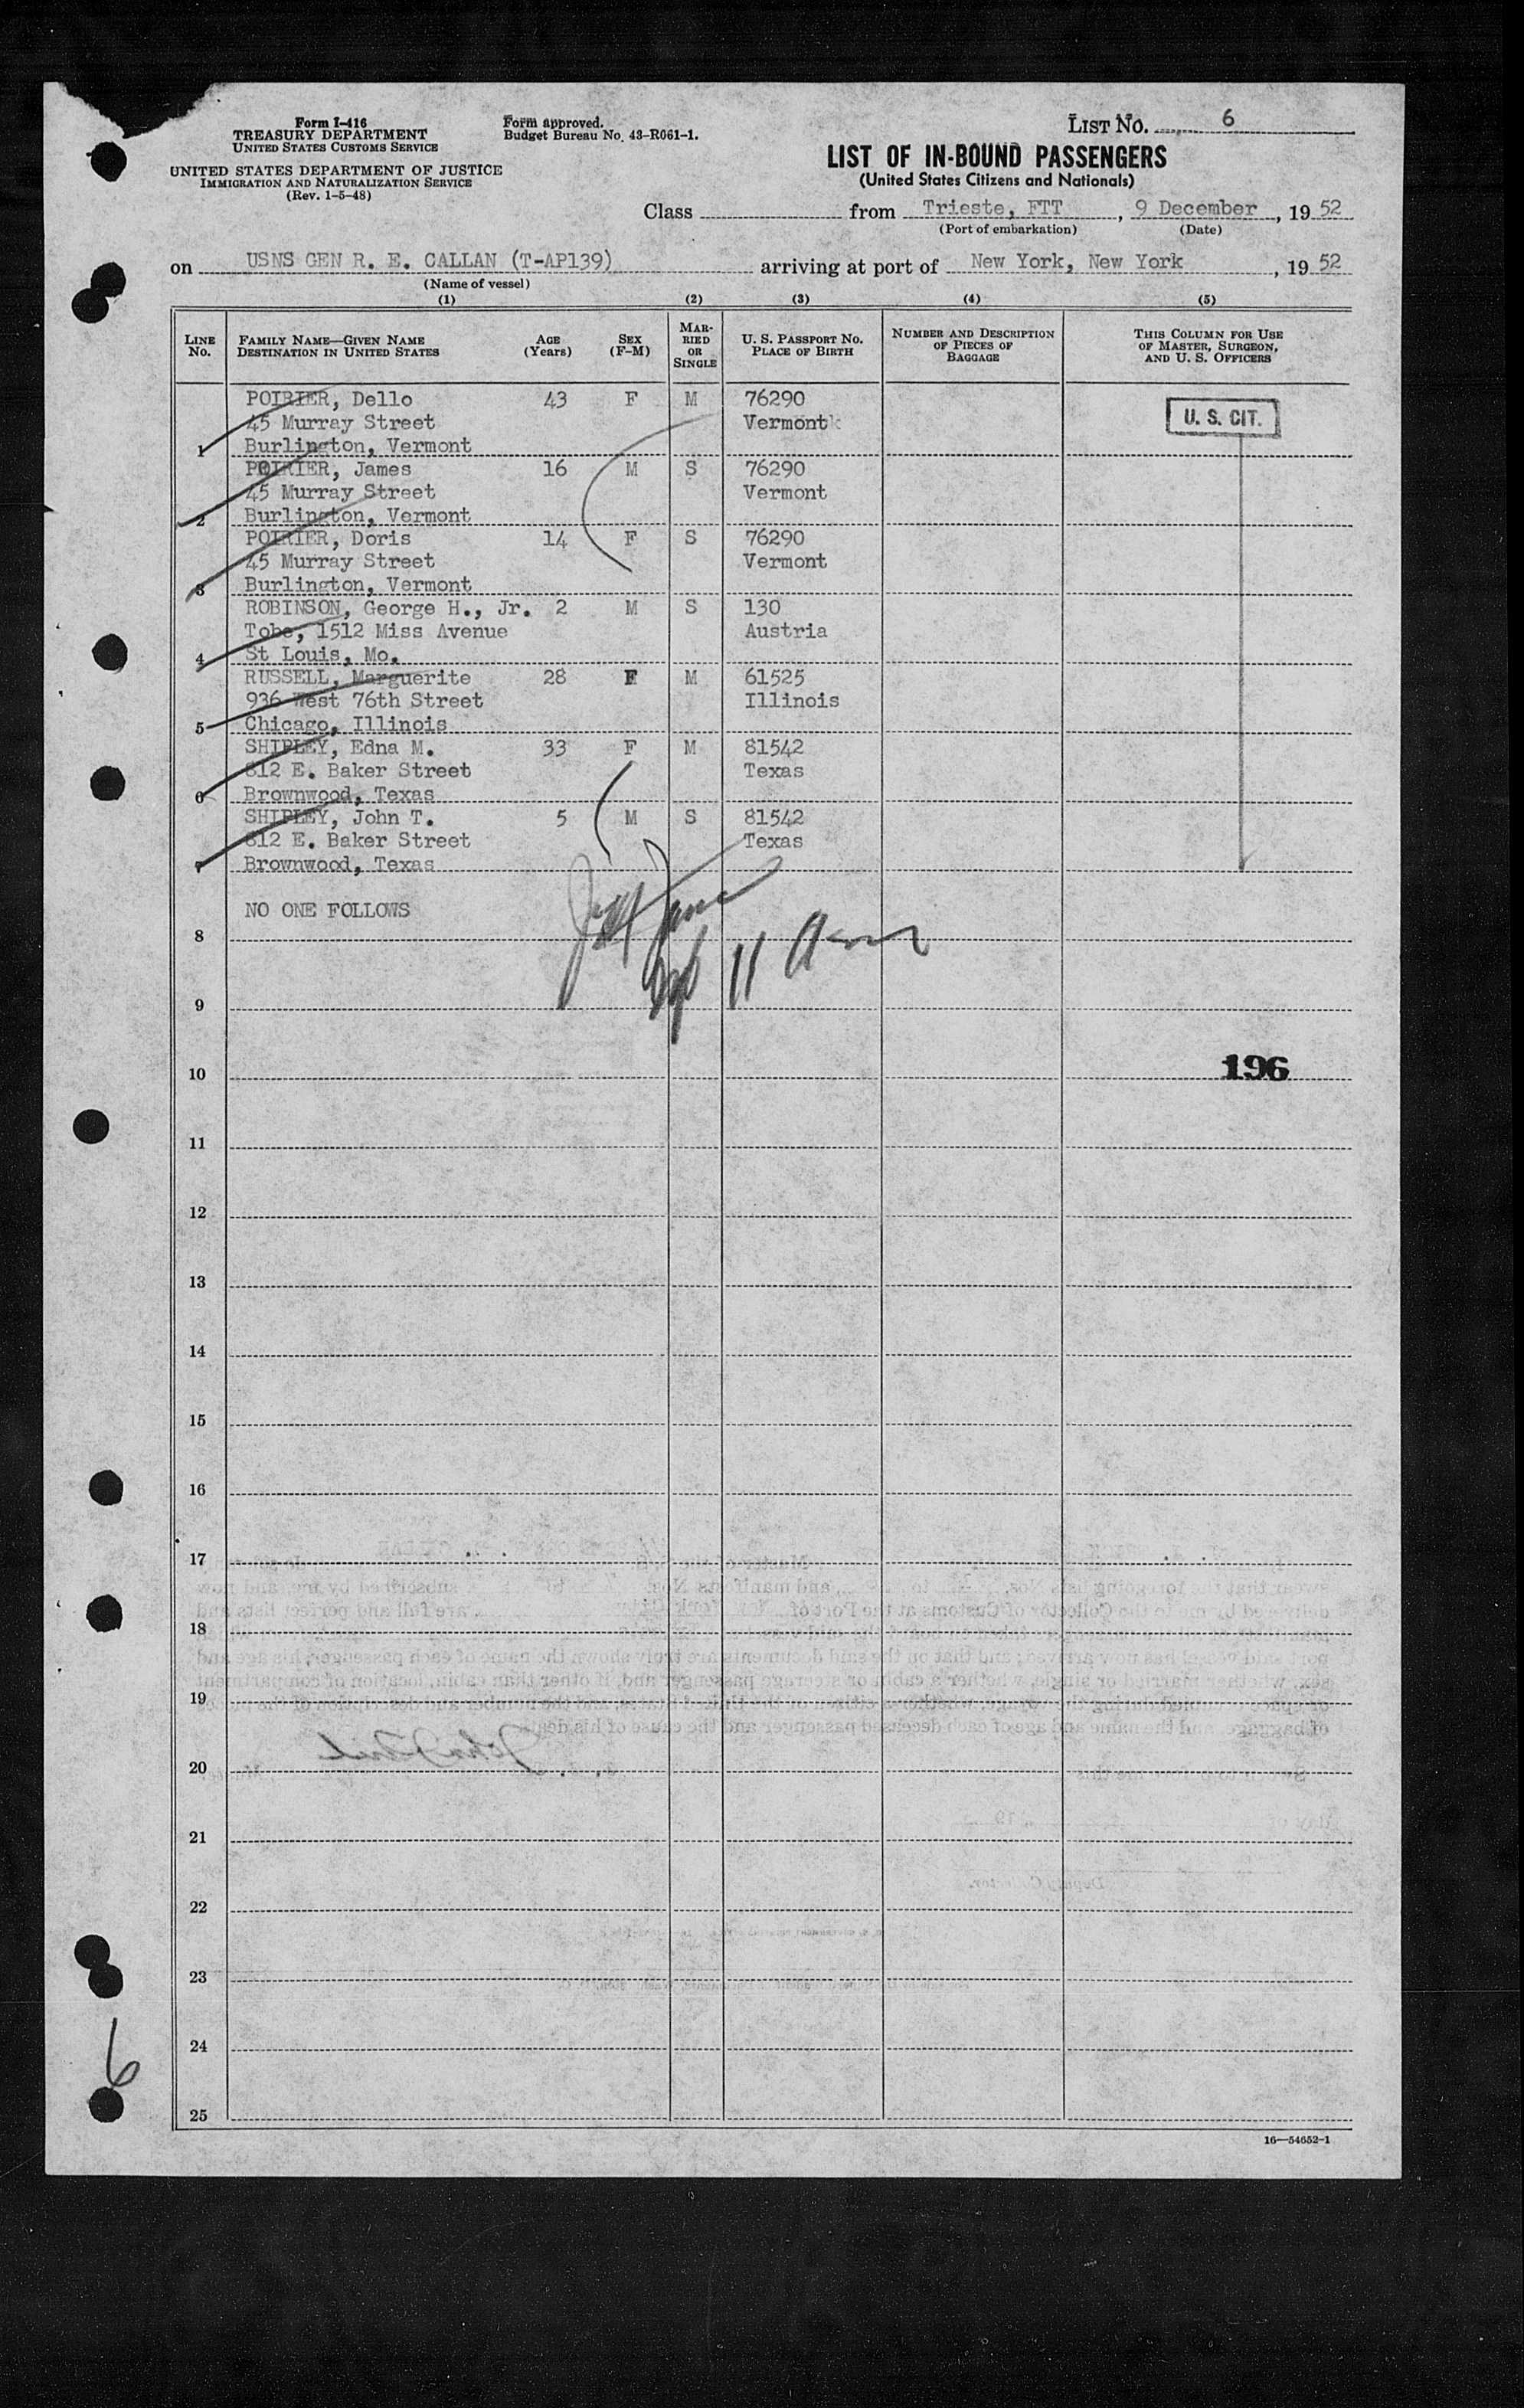 Form I-416
TREASURY DEPARTMENT
UNITED STATES CUSTOMS SERVICE
UNITED STATES DEPARTMENT OF JUSTICE
IMMIGRATION AND NATURALIZATION SERVICE
(Rev. 1-5-48)
Form approved.
Budget Bureau No. 43-R061-1.
LIST NO. 6
LIST OF IN-BOUND PASSENGERS
(United States Citizens and Nationals)
Class from Trieste, FTT, 9 December, 19 52
(Port of embarkation) (Date)
on USNS GEN R. E. CALLAN (T-AP139) arriving at port of New York, New York, 19 52
(Name of vessel)
(1) (2) (3) (4) (5)
LINE No. FAMILY NAME—GIVEN NAME DESTINATION IN UNITED STATES AGE (Years) SEX (F-M) MARRIED OR SINGLE U. S. PASSPORT NO. PLACE OF BIRTH NUMBER AND DESCRIPTION OF PIECES OF BAGGAGE THIS COLUMN FOR USE OF MASTER, SURGEON, AND U. S. OFFICERS
POIRIER, Dello 43 F M 76290
45 Murray Street Vermont U. S. CIT.
1 Burlington, Vermont
POIRIER, James 16 M S 76290
45 Murray Street Vermont
2 Burlington, Vermont
POIRIER, Doris 14 F S 76290
45 Murray Street Vermont
3 Burlington, Vermont
ROBINSON, George H., Jr. 2 M S 130
Tobe, 1512 Miss Avenue Austria
4 St Louis, Mo.
RUSSELL, Marguerite 28 F M 61525
936 West 76th Street Illinois
5 Chicago, Illinois
SHIPLEY, Edna M. 33 F M 81542
812 E. Baker Street Texas
6 Brownwood, Texas
SHIPLEY, John T. 5 M S 81542
812 E. Baker Street Texas
7 Brownwood, Texas
NO ONE FOLLOWS
8
9
10 196
11
12
13
14
15
16
17
18
19
20
21
22
23
24
25
6
16—54652-1